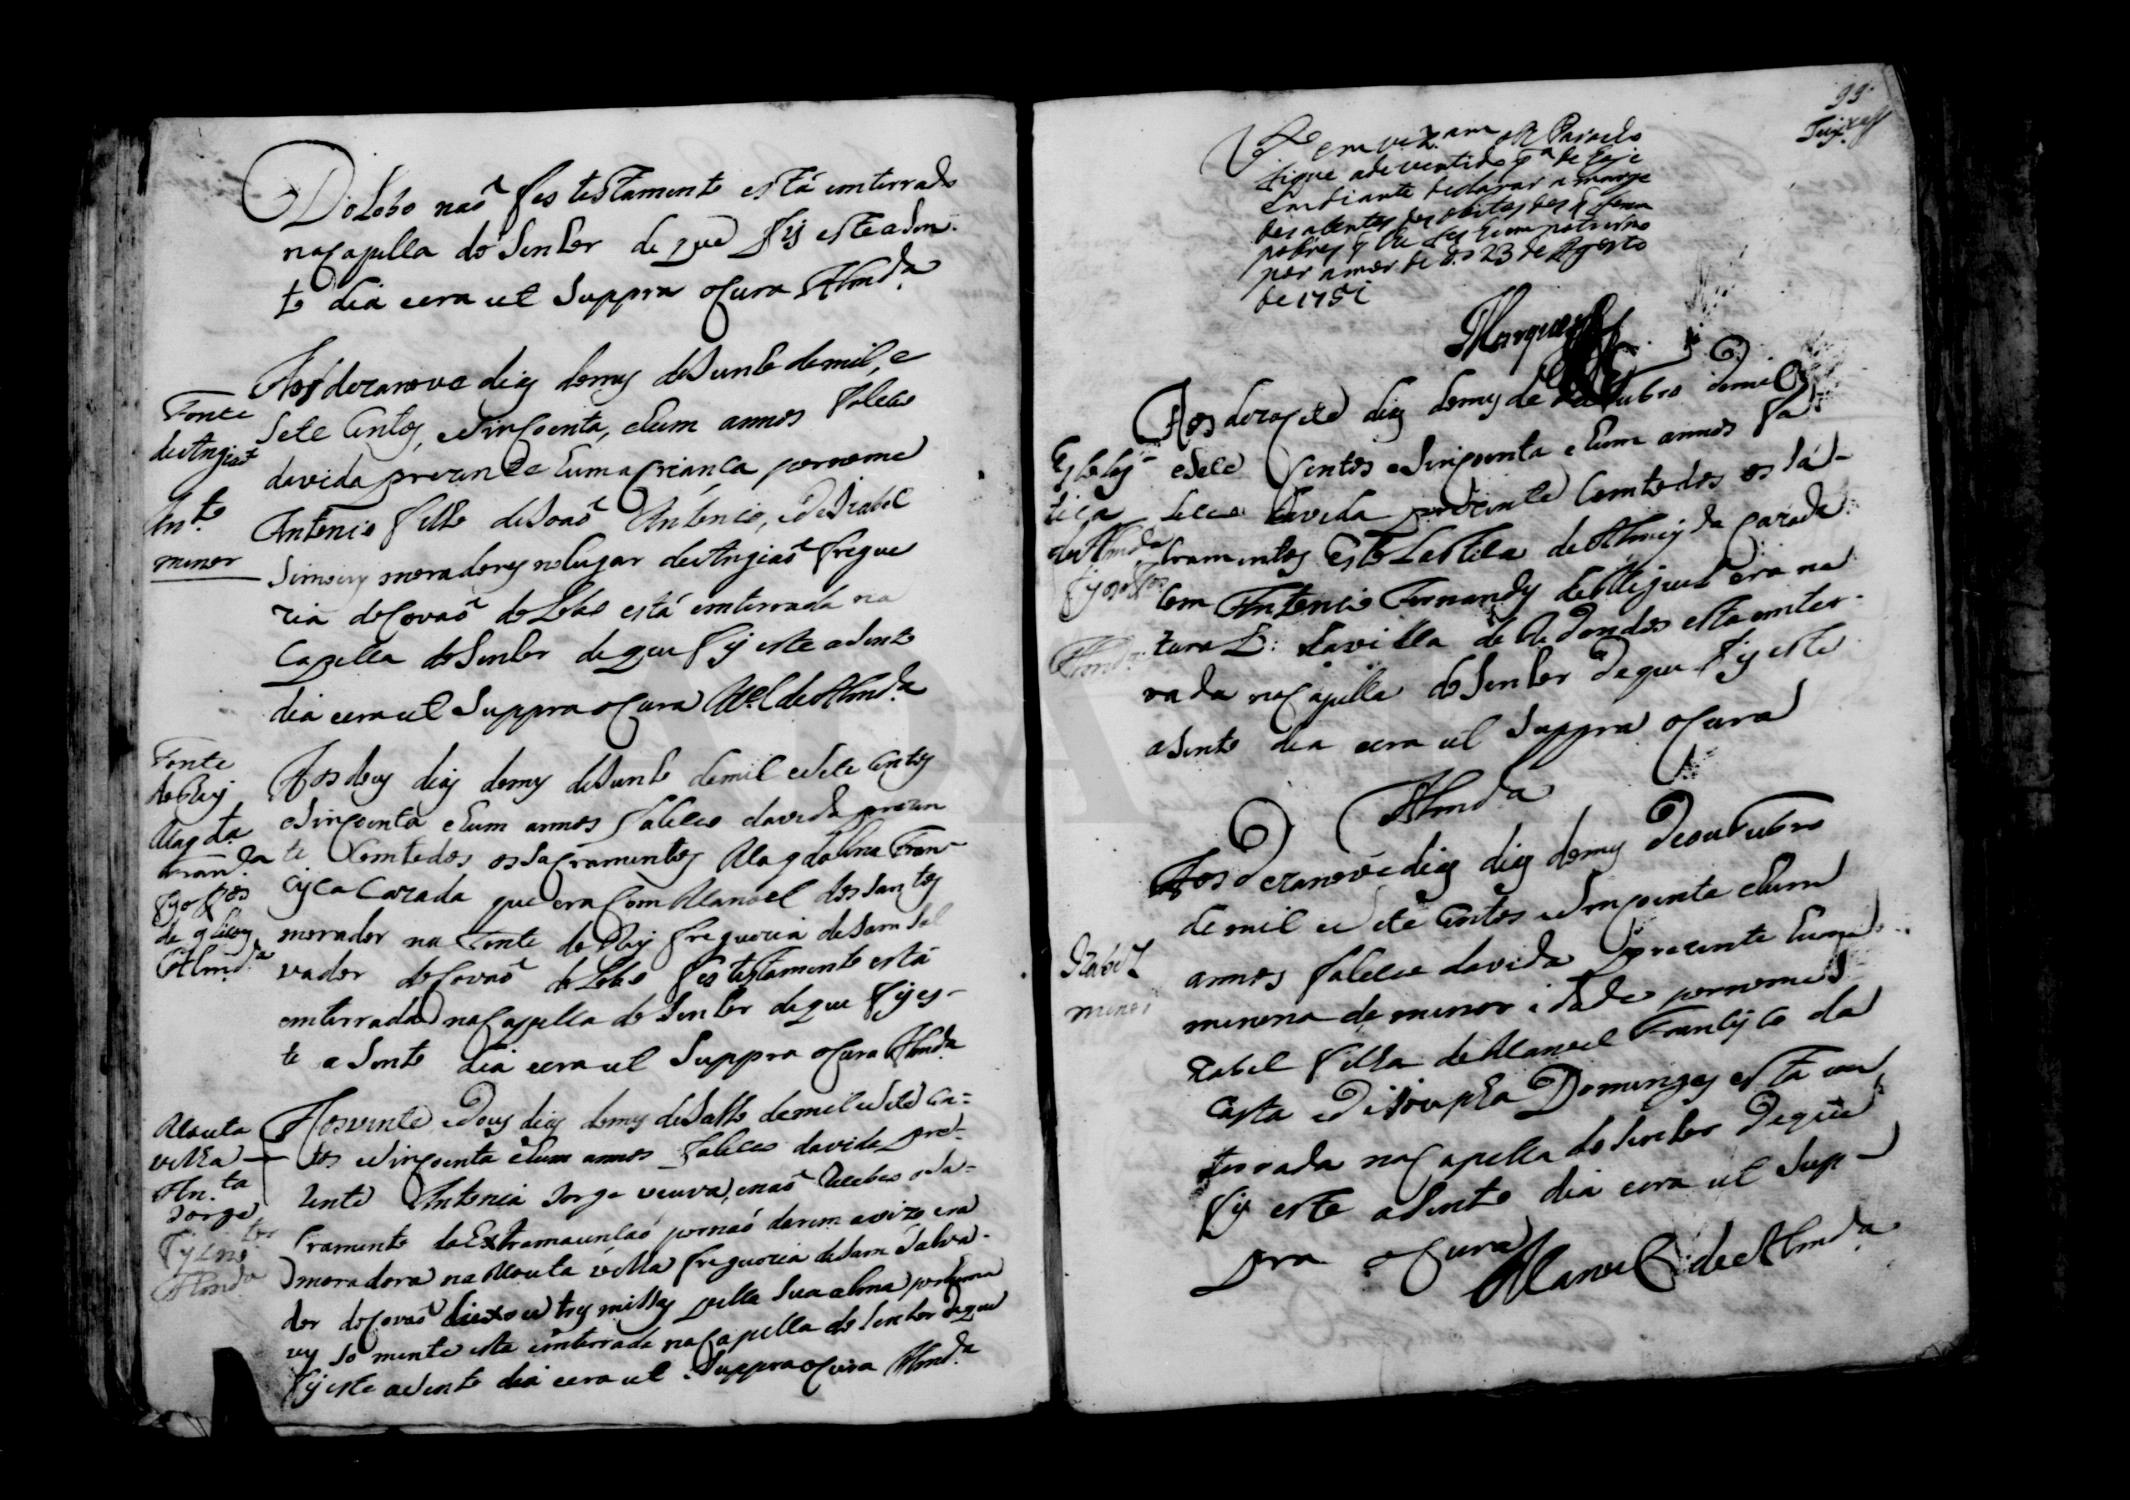 Do Lobo naõ fes testamento está emterrado
na Capella do Senhor de que fis este asen-
to dia eera ut suppra o Cura Almd.ª
Fonte
de Angiaõ
Ant.º
menor
Aos dezanove dias do mes de Junho de mil, e
Sete Centos, esincoenta, ehum annos faleceo
davida prezente huma Criança, por nome
Antonio filho de Joaõ Antonio, ede Izabel
Simois moradores no lugar de Angiaõ fregue
zia do Covaõ do Lobo está emterrada na
Capella do Senhor de que fis este asento
dia eera ut suppra o Cura M.el de Almd.ª
Fonte
do Grou
Magd.ª
Fran.ca
de q̃ dou
Almd.ª
Aos dous dias do mes de Junho de mil esete Centos
esincoenta ehum annos faleceo davida prezen
te Com todos os Sacramentos Magdalena Fran-
cisca Cazada que era Com Manoel dos Santos
morador na Fonte do freguezia de Sam Sal
vador do Covaõ do Lobo fes testamento está
emterrada na Capella do Senhor de que fis es-
te asento dia eera ut suppra o Cura Almd.ª
Mouta
velha
An.ta
Jorge
Almd.ª
Aos vinte edous dias do mes de Julho de mil esete Cen=
tos esincoenta ehum annos faleceo davida pre-
zente Antonia Jorge veuva, enaõ Recebeo o Sa=
cramento da Extramaunçaõ por naõ darem avizo era
moradora na Mouta velha freguezia de Sam Salva-
dor do Covaõ deixou tres missas pella sua alma por huma
ves so mente esta emterrada na Capella do Senhor de que
fis este asento dia eera ut suppra o Cura Almd.ª
99
em vez.am o R. Parocho
fique advertido q̃ de hoje
em diante declarar a marge
dos asentos dos obitos dos q̃ forem
pobres q̃ lhe fes
por amor de D.s 23 de Agosto
de 1751
Marques
Aos dezasete dias do mes de outubro de mil
esete Centos esincoenta ehum annos fa
leceo davida prezente Com todos os Sa-
cramentos Escolastica de Almeyda Cazada
Com Antonio Fernandes de Miguel era na
tural da villa de Redondos esta emter-
rada na Capella do Senhor de que fis este
asento dia eera ut suppra o Cura
Almd.ª
de Almd.ª
Almd.ª
Izabel
menor
Aos Dezanove dias dias do mes de outubro
de mil esete Centos esincoenta ehum
annos faleceo davida prezente huma
menena de menor idade por nome I
zabel filha de Manoel Francisco da
Costa e de Josepha Domingues esta em
terrada na Capella do Senhor de que
fis este asento dia eera ut sup-
pra o Cura Manoel de Almd.ª